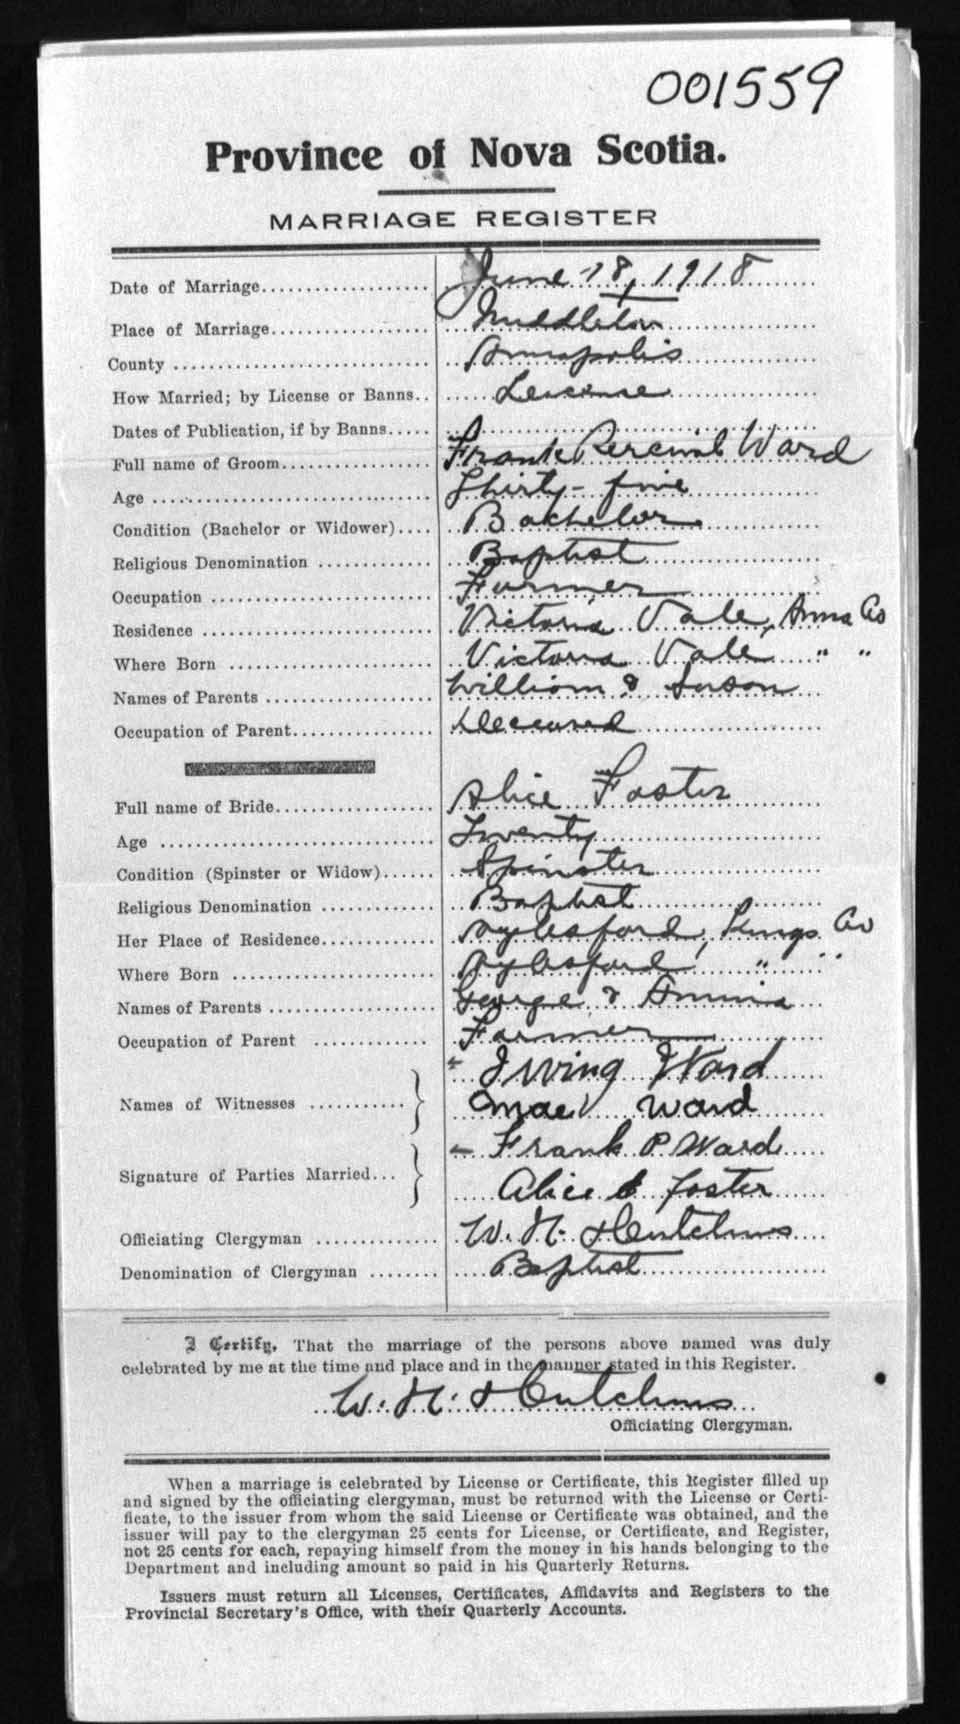 001559
Province of Nova Scotia.
MARRIAGE REGISTER
Date of Marriage.................. June 18, 1918
Place of Marriage.................. Middleton
County .................. Annapolis
How Married; by License or Banns.. License
Dates of Publication, if by Banns.....
Full name of Groom.................. Frank Percival Ward
Age .................. Thirty-five
Condition (Bachelor or Widower).... Bachelor
Religious Denomination .................. Baptist
Occupation .................. Farmer
Residence .................. Victoria Vale, Anna Co
Where Born .................. Victoria Vale " "
Names of Parents .................. William & Susan
Occupation of Parent.................. Deceased
Full name of Bride.................. Alice Foster
Age .................. Twenty
Condition (Spinster or Widow)...... Spinster
Religious Denomination .................. Baptist
Her Place of Residence.................. Aylesford, Kings Co
Where Born .................. Aylesford " "
Names of Parents .................. George &
Occupation of Parent .................. Farmer
Irving Ward
Names of Witnesses ..................
Mae Ward
Frank P. Ward
Signature of Parties Married...
Alice Foster
Officiating Clergyman .................. W. N. Hutchins
Denomination of Clergyman ........ Baptist
I Certify, That the marriage of the persons above named was duly
celebrated by me at the time and place and in the manner stated in this Register.
W. N. Hutchins
Officiating Clergyman.
When a marriage is celebrated by License or Certificate, this Register filled up
and signed by the officiating clergyman, must be returned with the License or Certi-
ficate, to the issuer from whom the said License or Certificate was obtained, and the
issuer will pay to the clergyman 25 cents for License, or Certificate, and Register,
not 25 cents for each, repaying himself from the money in his hands belonging to the
Department and including amount so paid in his Quarterly Returns.
Issuers must return all Licenses, Certificates, Affidavits and Registers to the
Provincial Secretary's Office, with their Quarterly Accounts.